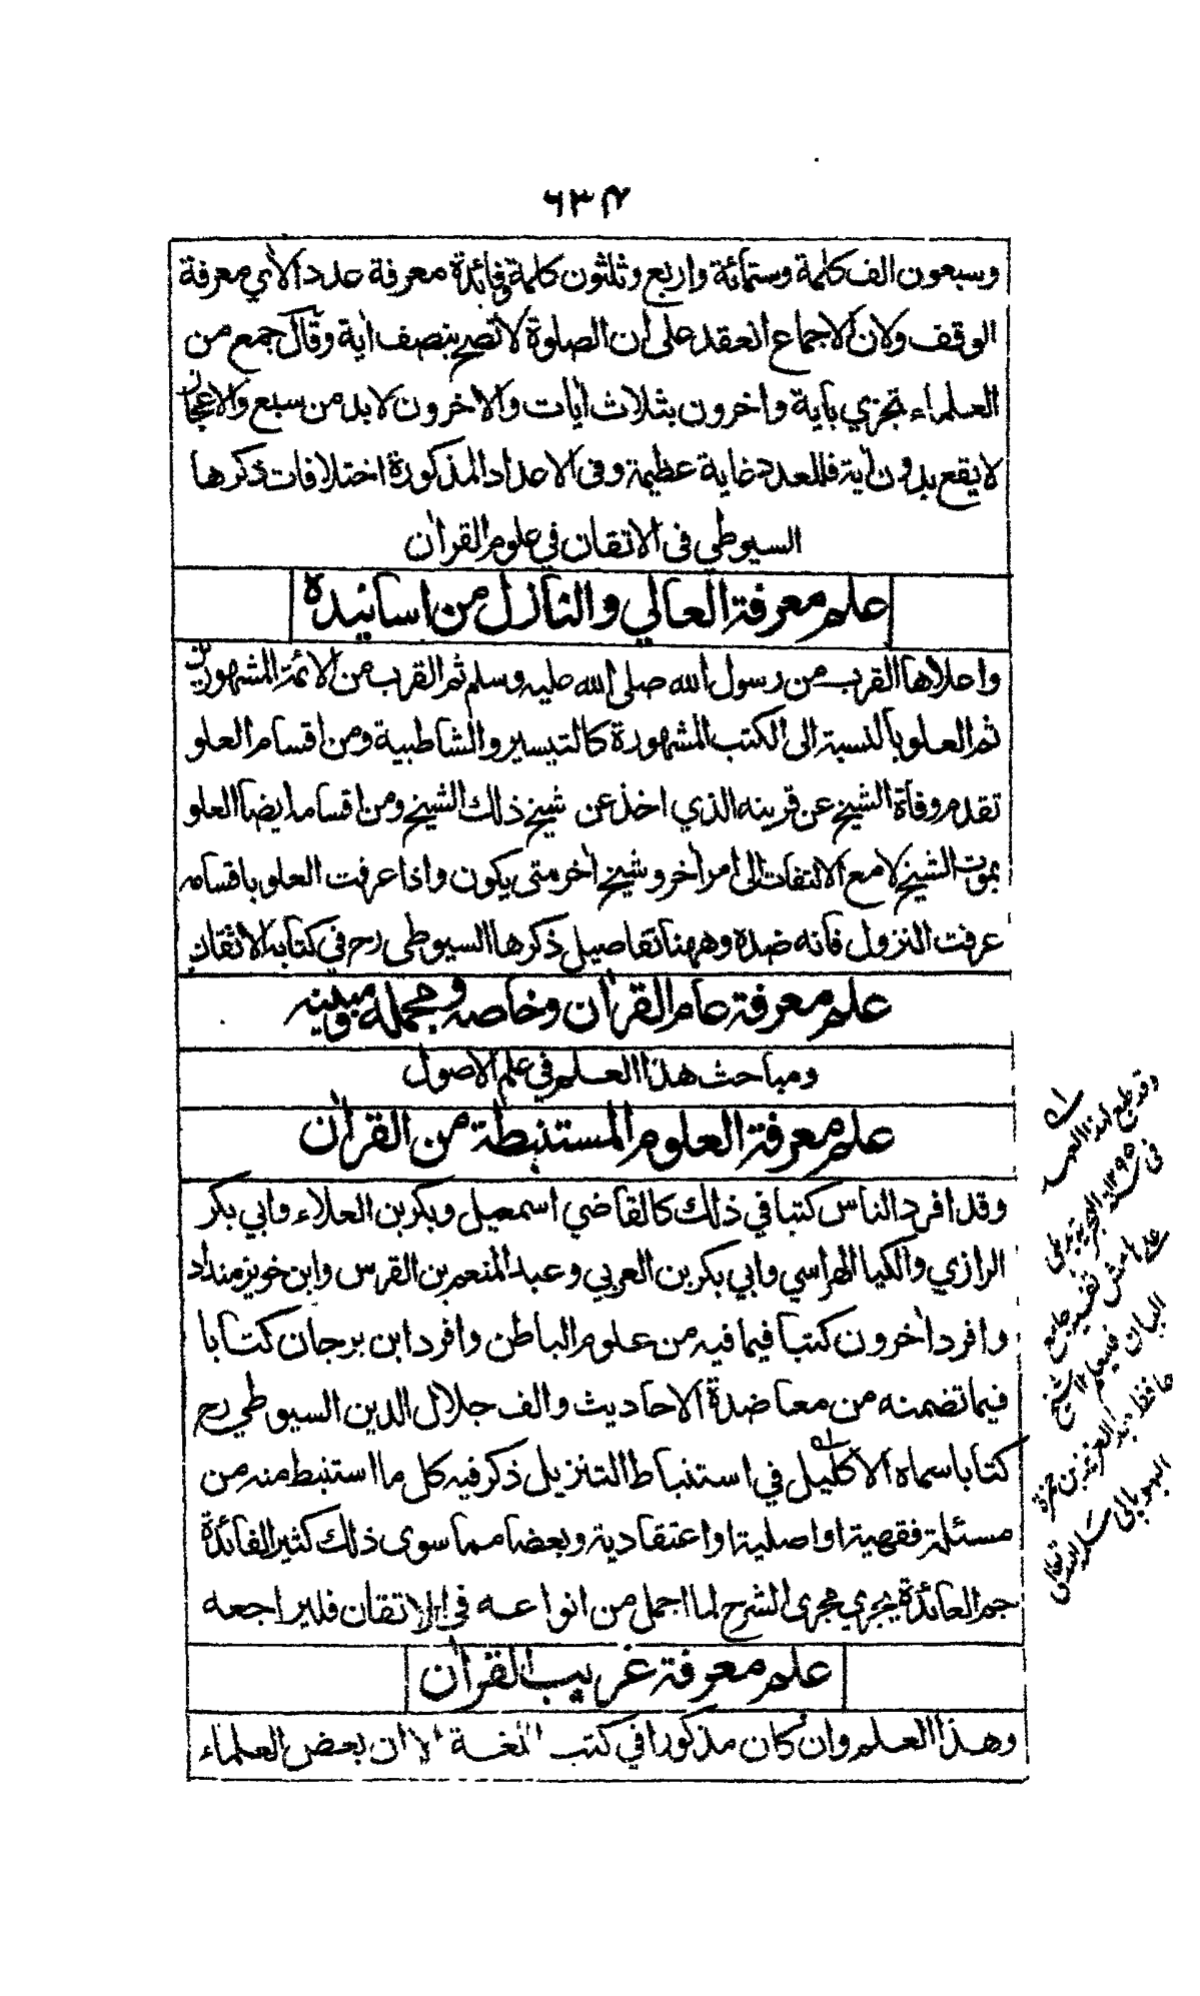 ٦٣٤
وسبعون الف كلمة وستمائة واربع وثلثون كلمة وفائدة معرفة عدد الاٰي معرفة
الوقف ولان الاجماع انعقد على ان الصلوة لا تصح بنصف اٰية وقال جمع من
العلماء تجزي باٰية واخرون بثلاث اٰيات والاخرون لا بد من سبع والاعجاز
لا يقع بدون اٰية فللعدد غاية عظيمة وفى الاعداد المذكورة اختلافات ذكرها
السيوطي فى الاتقان في علوم القراٰن
علم معرفة العالي والنازل من اسانيده
واعلاها القرب من رسول الله صلى الله عليه وسلم ثم القرب من الائمة المشهورين
ثم العلو بالنسبة الى الكتب المشهورة كالتيسير والشاطبية ومن اقسام العلو
تقدم وفاة الشيخ عن قرينه الذي اخذ عن شيخ ذلك الشيخ ومن اقسامه ايضا العلو
بموت الشيخ لا مع الالتفات الى امر اٰخر وشيخ اٰخر متى يكون واذا عرفت العلو باقسامه
عرفت النزول فانه ضده وههنا تفاصيل ذكرها السيوطى رح في كتابه الاتقان
علم معرفة عام القراٰن وخاصه ومجمله ومبينه
ومباحث هذا العلم في علم الاصول
علم معرفة العلوم المستنبطة من القراٰن
وقد افرد الناس كتبا في ذلك كالقاضي اسمعيل وبكر بن العلاء وابي بكر
الرازي والكيا الهراسي وابي بكر بن العربي وعبد المنعم بن الفرس وابن خويز منداد
وافرد اٰخرون كتبا فيما فيه من علوم الباطن وافرد ابن برجان كتابا
فيما تضمنه من معاضدة الاحاديث والف جلال الدين السيوطي رح
كتابا سماه الاكليل في استنباط التنزيل ذكر فيه كل ما استنبط منه من
مسئلة فقهية او اصلية او اعتقادية وبعضا مما سوى ذلك كثير الفائدة
جم العائدة يجري مجرى الشرح لما اجمل من انواعه فى الاتقان فليراجعه
علم معرفة غريب القراٰن
وهذا العلم وان كان مذكورا في كتب اللغة الا ان بعض العلماء
وقد طبع هذا
فى سنة ١٢٩٥ الهجرية
على هامش تفسير جامع
البيان
حافظ عبد العزيز بن
البهوبالى سلمه الله تعالى